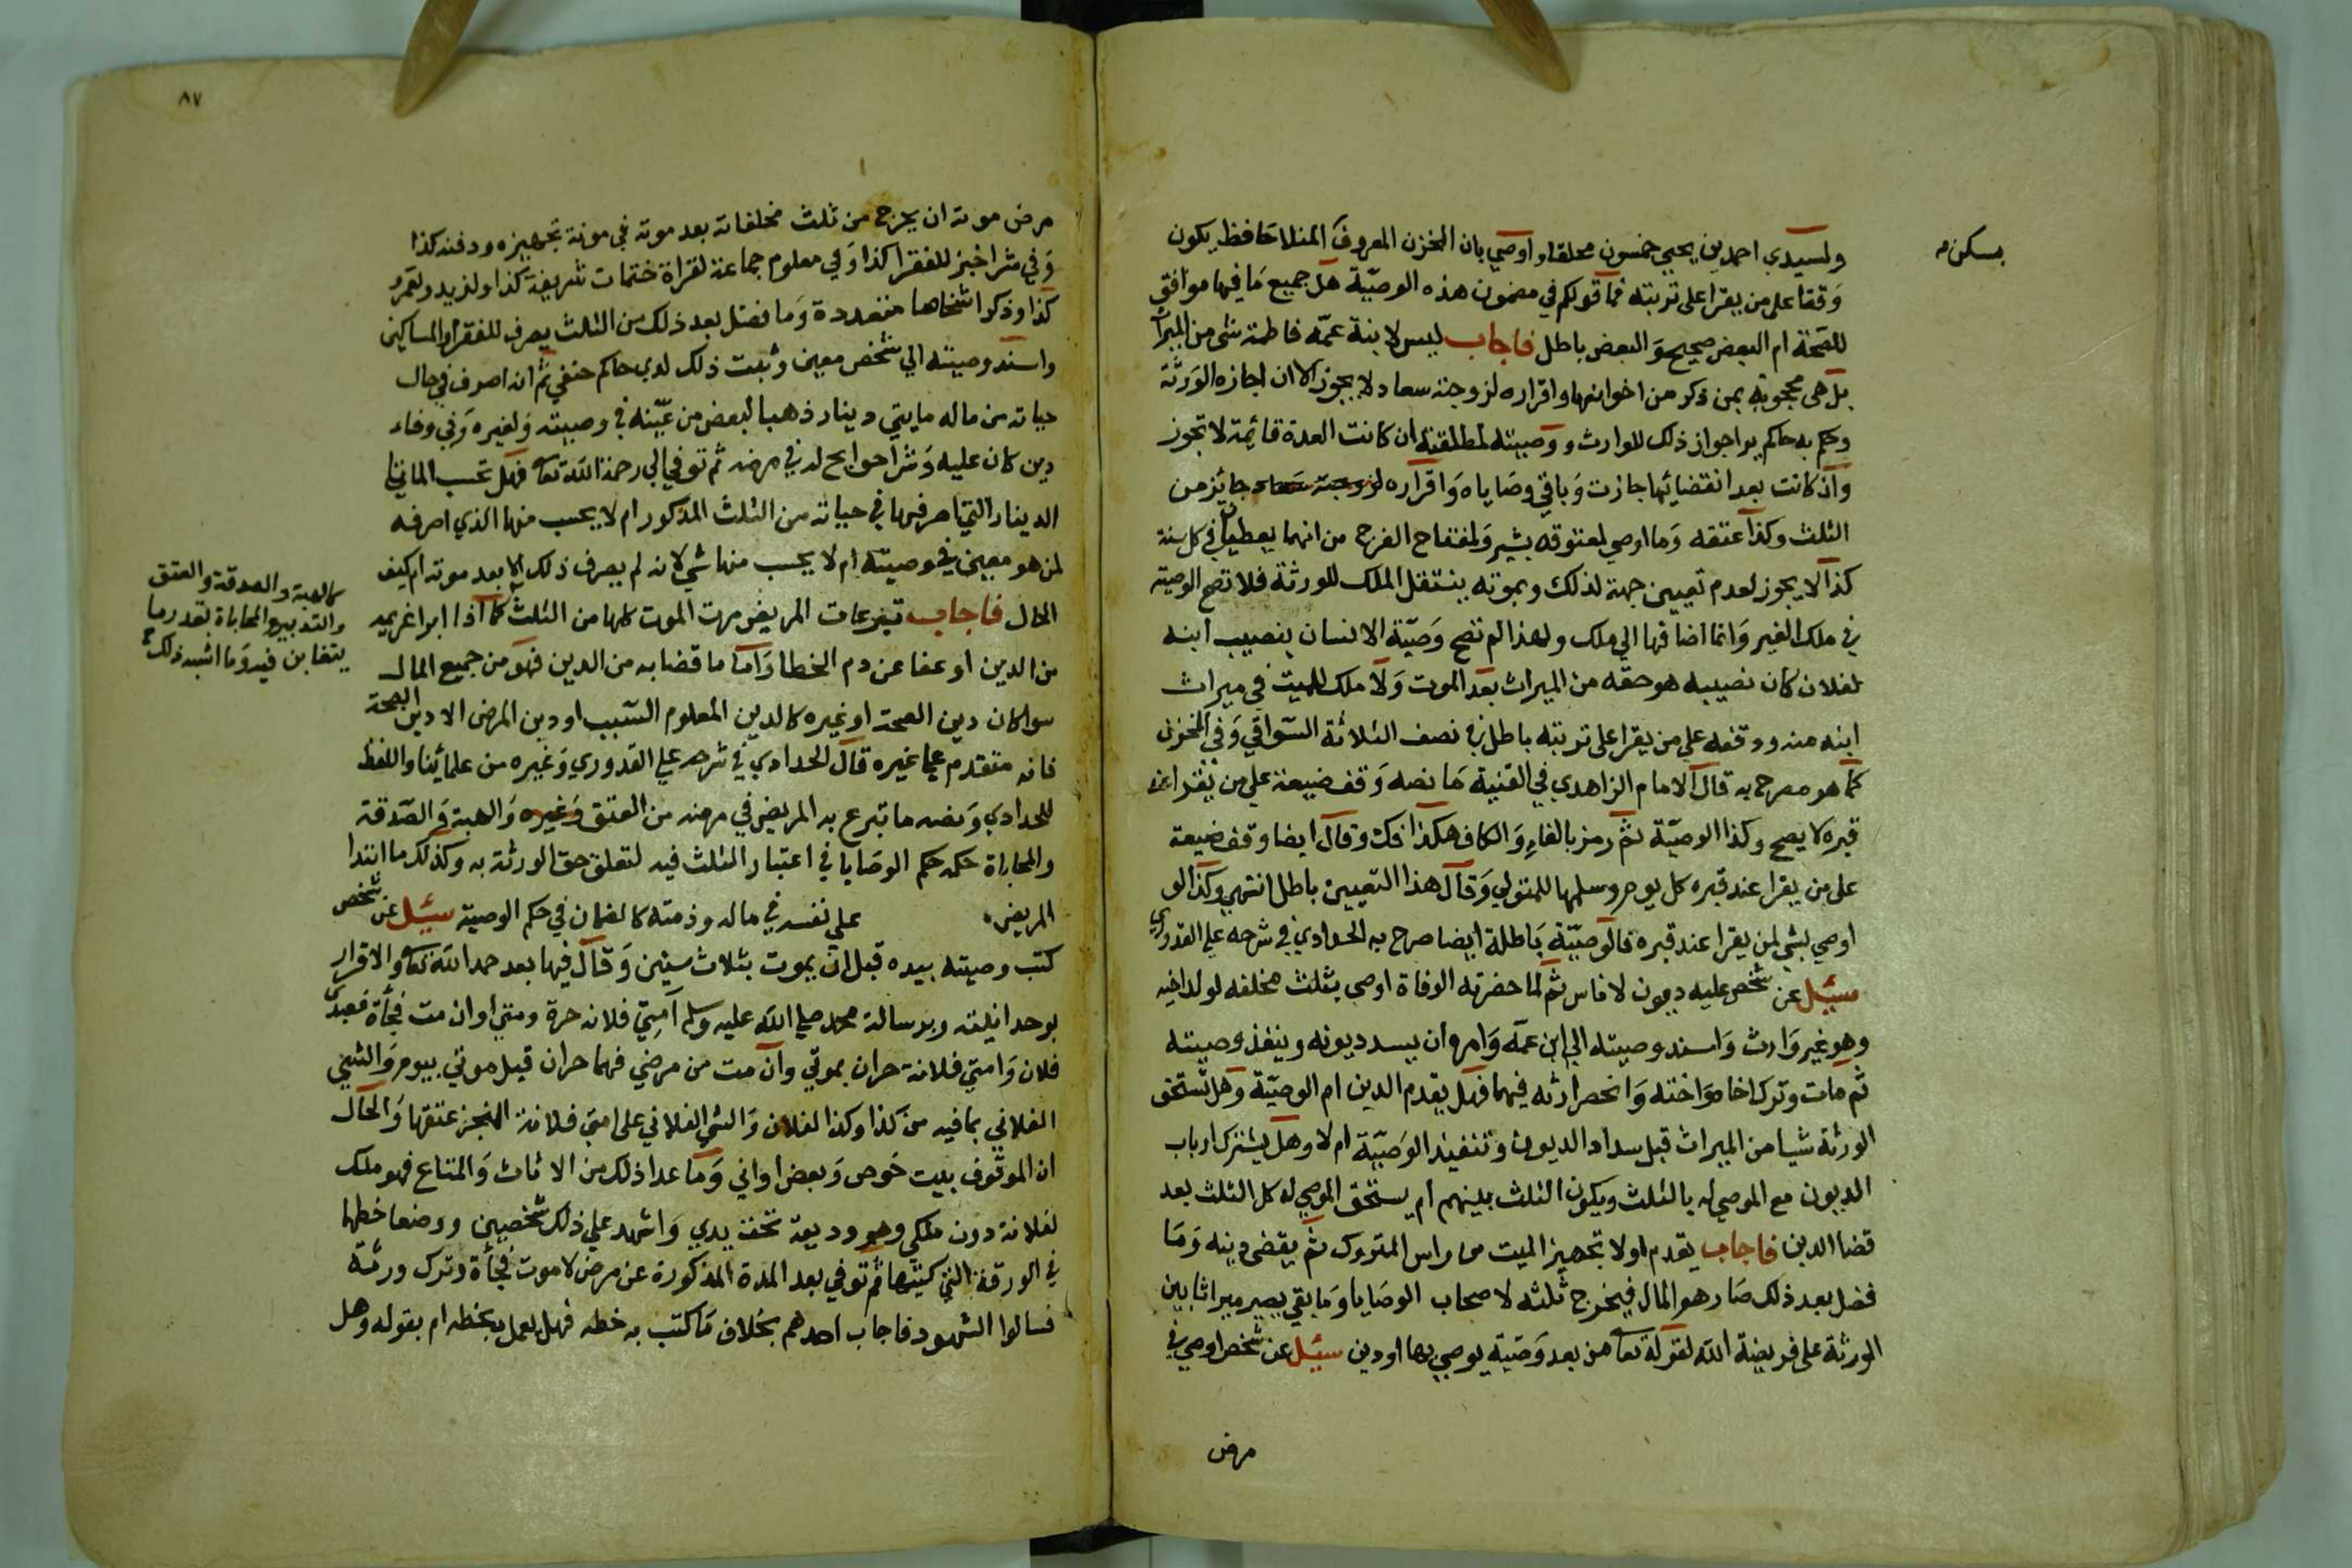 ولسيدي احمد بن يحيي خمسون محلقا واوصي بان المخزن المعروف المنلا حافظ يكون
بمسكن
وقفا علي من يقرا على تربته فما قولكم في مضمون هذه الوصية هل جميع ما فيها موافق
للصحة ام البعض صحيح والبعض باطل فاجاب ليس لابنة عمه فاطمة شي من الميراث
بل هي محجوبة بمن ذكر من اخوانها واقراره لزوجته سعاد لا يجوز الا ان اجازه الورثة
وحكم به حاكم يرا جواز ذلك للوارث ووصيته لمطلقته ان كانت العدة قائمة لا تجوز
وان كانت بعد انقضائها جازت وباقي وصاياه واقراره لزوجته سعاد جائز من
الثلث وكذا عتقه وما اوصي لمعتوقه بشير ولمفتاح الفرج من انهما يعطيان في كل سنة
كذا لا يجوز لعدم تعيين جهة لذلك وبموته ينتقل الملك للورثة فلا تصح الوصية
في ملك الغير وانما اضافها الي ملك ولهذا لم تصح وصية الانسان بنصيب ابنه
لفلان كان نصيبه هو حقه من الميراث بعد الموت ولا ملك للميت في ميراث
ابنه منه ووقفه علي من يقرا على تربته باطل في نصف الثلاثة السواقي وفي المخزن
كما هو مصرح به قال الامام الزاهدي في القنية ما نصه وقف ضيعة علي من يقرا عند
قبره لا يصح وكذا الوصية ثم رمز بالفاء والكاف هكذا فك وقال ايضا وقف ضيعة
على من يقرا عند قبره كل يوم وسلمها للمتولي وقال هذا التعيين باطل انتهي وكذا لو
اوصي بشي لمن يقرا عند قبره فالوصية باطلة ايضا صرح به الحدادي في شرحه علي القدوري
سئل عن شخص عليه ديون لاناس ثم لما حضرته الوفاة اوصي بثلث مخلفه لولد اخيه
وهو غير وارث واسند وصيته الي ابن عمه وامره ان يسدد ديونه وينفذ وصيته
ثم مات وترك اخاه واخته وانحصر ارثه فيهما فهل يقدم الدين ام الوصية وهل تستحق
الورثة شيا من الميراث قبل سداد الديون وتنفيذ الوصية ام لا وهل يشترك ارباب
الديون مع الموصي له بالثلث ويكون الثلث بينهم ام يستحق الموصي له كل الثلث بعد
قضا الدين فاجاب يقدم اولا تجهيز الميت من راس المتروك ثم يقضي دينه وما
فضل بعد ذلك صار هو المال فيخرج ثلثه لاصحاب الوصايا وما بقي يصير ميراثا بين
الورثة على فريضة الله لقوله تعا من بعد وصية يوصي بها او دين سئل عن شخص اوصي في
مرض
٨٧
مرض موته ان يخرج من ثلث مخلفاته بعد موته في مونة تجهيزه ودفنه كذا
وفي شرا خبز للفقرا كذا وفي معلوم جماعة لقراة ختمات شريفة كذا ولزيد ولعمرو
كذا وذكر اشخاصا متعددة وما فضل بعد ذلك من الثلث يصرف للفقرا والمساكين
واسند وصيته الي شخص معين وثبت ذلك لدي حاكم حنفي ثم انه اصرف في حال
حياته من ماله مايتي دينار ذهبا لبعض من عينه في وصيته ولغيره وفي وفاء
دين كان عليه وشرا حوايج له في مرضه ثم توفي الي رحمة الله تعا فهل تحسب المائتا
الدينار التي اصرفها في حياته من الثلث المذكور ام لا يحسب منها الذي اصرفه
لمن هو معين في وصيته ام لا يحسب منها شي لانه لم يصرف ذلك الا بعد موته ام كيف
الحال فاجاب تبرعات المريض مرض الموت كلها من الثلث كما اذا ابرا غريمه
كالهبة والصدقة والعتق
والتدبير والمحاباة بقدر ما
يتغابن فيه وما اشبه ذلك
من الدين او عفا عن دم الخطا واما ما قضا به من الدين فهو من جميع المال
سوا كان دين الصحة او غيره كالدين المعلوم السبب او دين المرض الا دين الصحة
فانه متقدم علي غيره قال الحدادي في شرحه علي القدوري وغيره من علمائنا واللفظ
للحدادي ونصه ما تبرع به المريض في مرضه من العتق وغيره والهبة والصدقة
والمحاباة حكمه حكم الوصايا في اعتبار الثلث فيه لتعلق حق الورثة به وكذلك ما ابتدا
المريض علي نفسه في ماله وذمته كالضمان في حكم الوصية سئل عن شخص
كتب وصيته بيده قبل ان يموت بثلاث سنين وقال فيها بعد حمد الله تعا والاقرار
بوحدانيته وبرسالة محمد صلي الله عليه وسلم امتي فلانه حرة ومتي او ان مت فجأة فعبدي
فلان وامتي فلانة حران بموتي وان مت من مرضي فهما حران قبل موتي بيوم والشي
الفلاني بما فيه من كذا وكذا لفلان والشي الفلاني على امتي فلانة المنجز عتقها والحال
ان الموقوف بيت خوص وبعض اواني وما عدا ذلك من الاثاث والمتاع فهو ملك
لفلانة دون ملكي وهو وديعة تحت يدي واشهد علي ذلك شخصين ووضعا خطهما
في الورقة التي كتبها ثم توفي بعد المدة المذكورة عن مرض لا موت فجأة وترك ورثة
فسالوا الشهود فاجاب احدهم بخلاف ما كتب به خطه فهل يعمل بخطه ام بقوله وهل